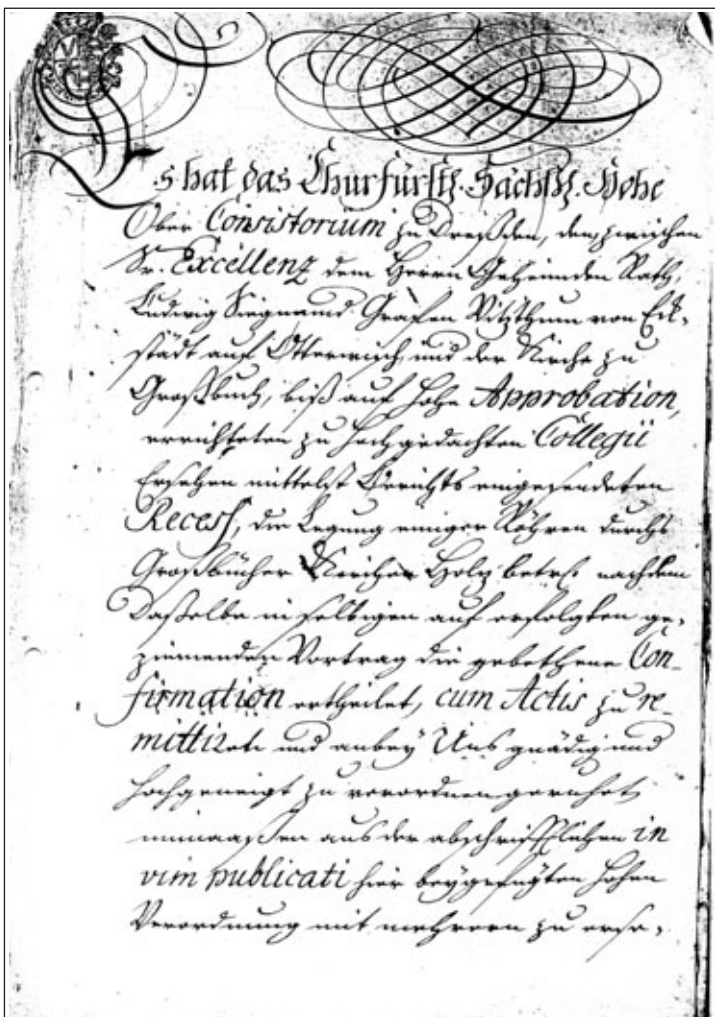 Es hat das Churfürstl. Sächß. Hohe
Ober Consistorium zu Dreßden, den zwischen
Sr. Excellenz dem Herrn Geheimden Rath,
Ludwig Siegmund Grafen Vitzthum von Eck-
städt auf Otterwisch und der Kirche zu
Großbuch, biß auf hohe Approbation,
errichteten zu hochgedachten Collegii
Ersehen mittelst Berichts eingesendeten
Recess, die Legung einiger Röhren durchs
Großbucher Kirchen Holz betrl. nachdem
Dasselbe in selbigen auf erfolgten ge-
ziemenden Vortrag die gebethene Con-
firmation ertheilet, cum Actis zu re-
mittiren und anbey Uns gnädig und
hochgeneigt zu verordnen geruhet
immaaßen aus der abschrifftlichen in
vim publicati hier beygefügten hohen
Verordnung mit mehrern zu erse-